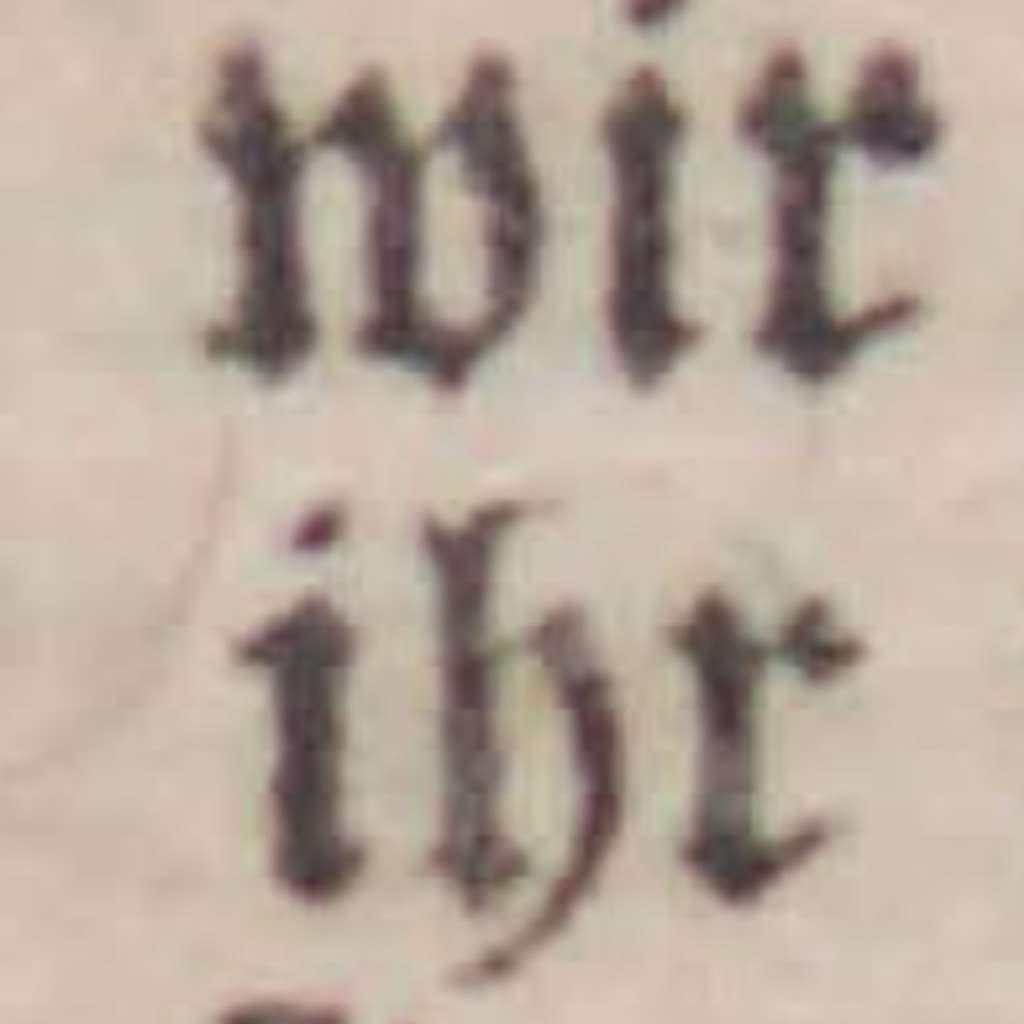 wir
ihr